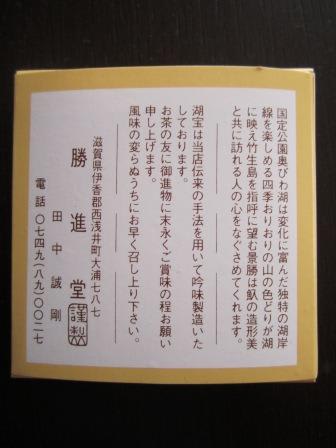 国定公園奥びわ湖は変化に富んだ独特の湖岸
線を楽しめる四季おりおりの山の色どりが湖
に映え竹生島を指呼に望む景勝は魞の造形美
と共に訪れる人の心をなぐさめてくれます。
湖宝は当店伝来の手法を用いて吟味製造いた
しております。
お茶の友に御進物に末永くご賞味の程お願い
申し上げます。
風味の変らぬうちにお早く召し上り下さい。
滋賀県伊香郡西浅井町大浦七八七
勝進堂 謹製
田中誠剛
電話 〇七四九(八九)〇〇二七